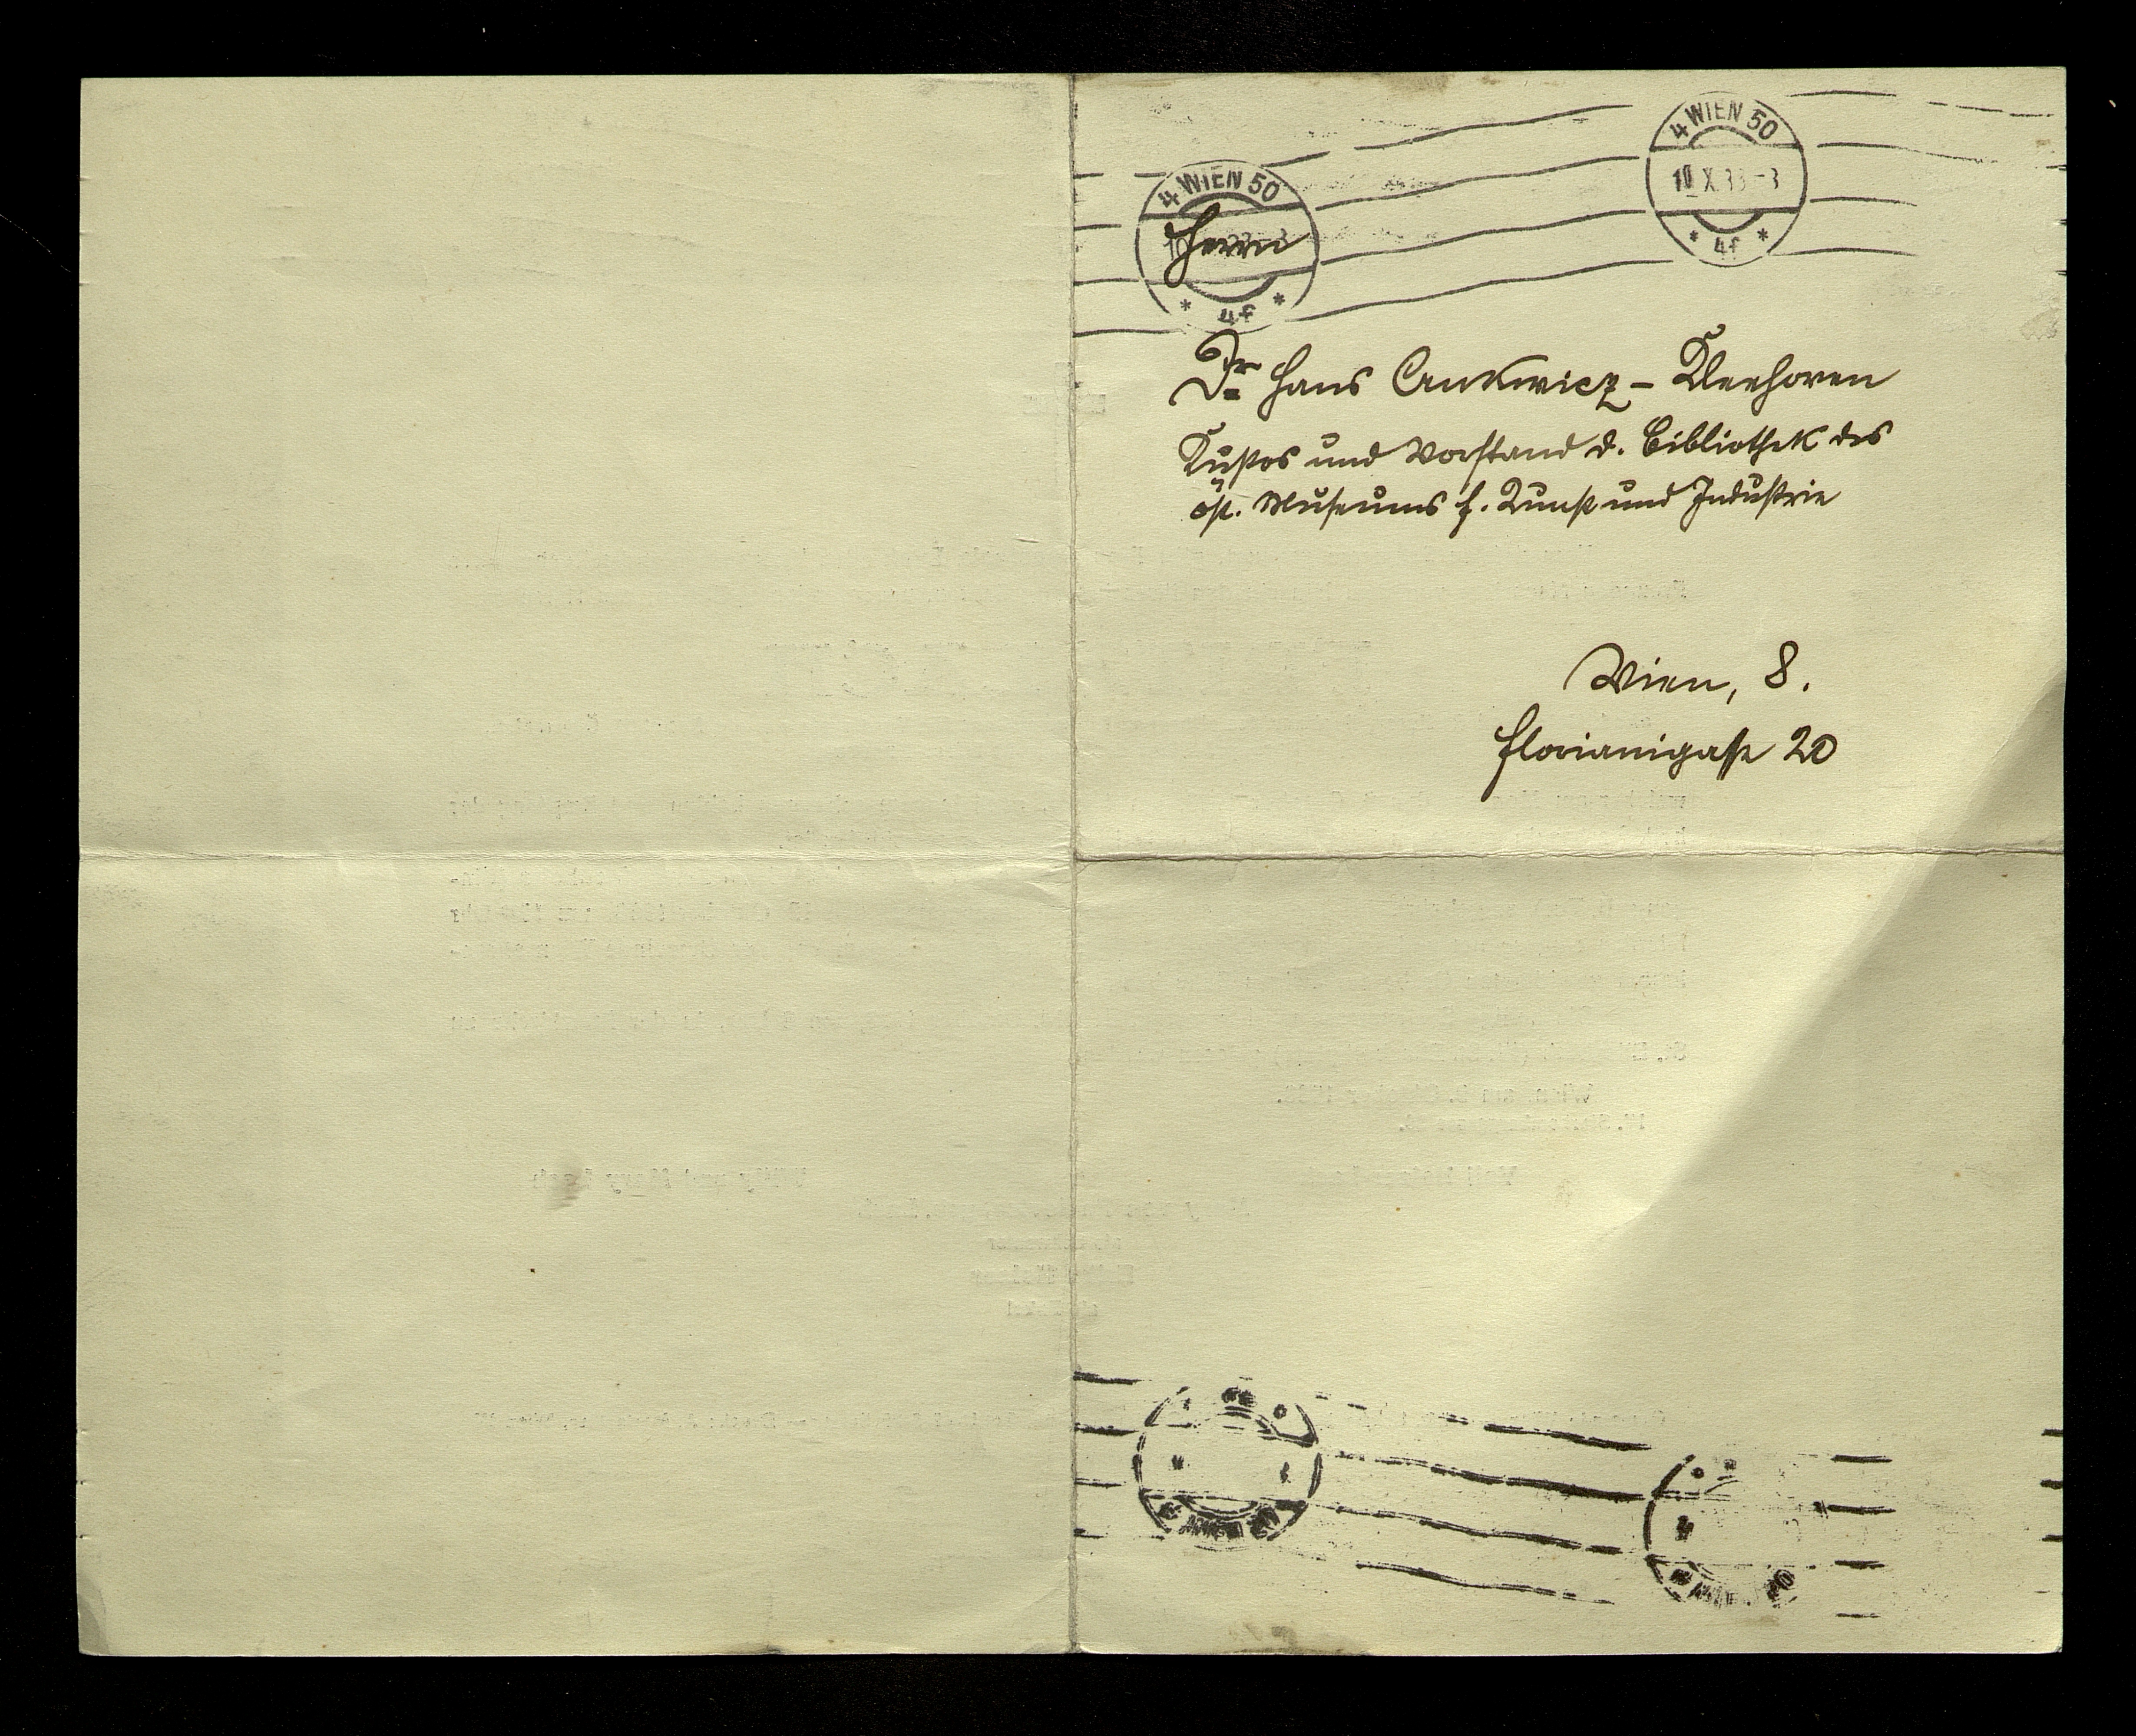 4 WIEN 50
10 X 33 - 3
* 4f *
4 WIEN 50
* 4f *
Herrn
Dr. Hans Ankwicz - Kleehoven
Kustos und Vorstand d. Bibliothek des
öst. Museums f. Kunst und Industrie
Wien, 8.
Florianigasse 20